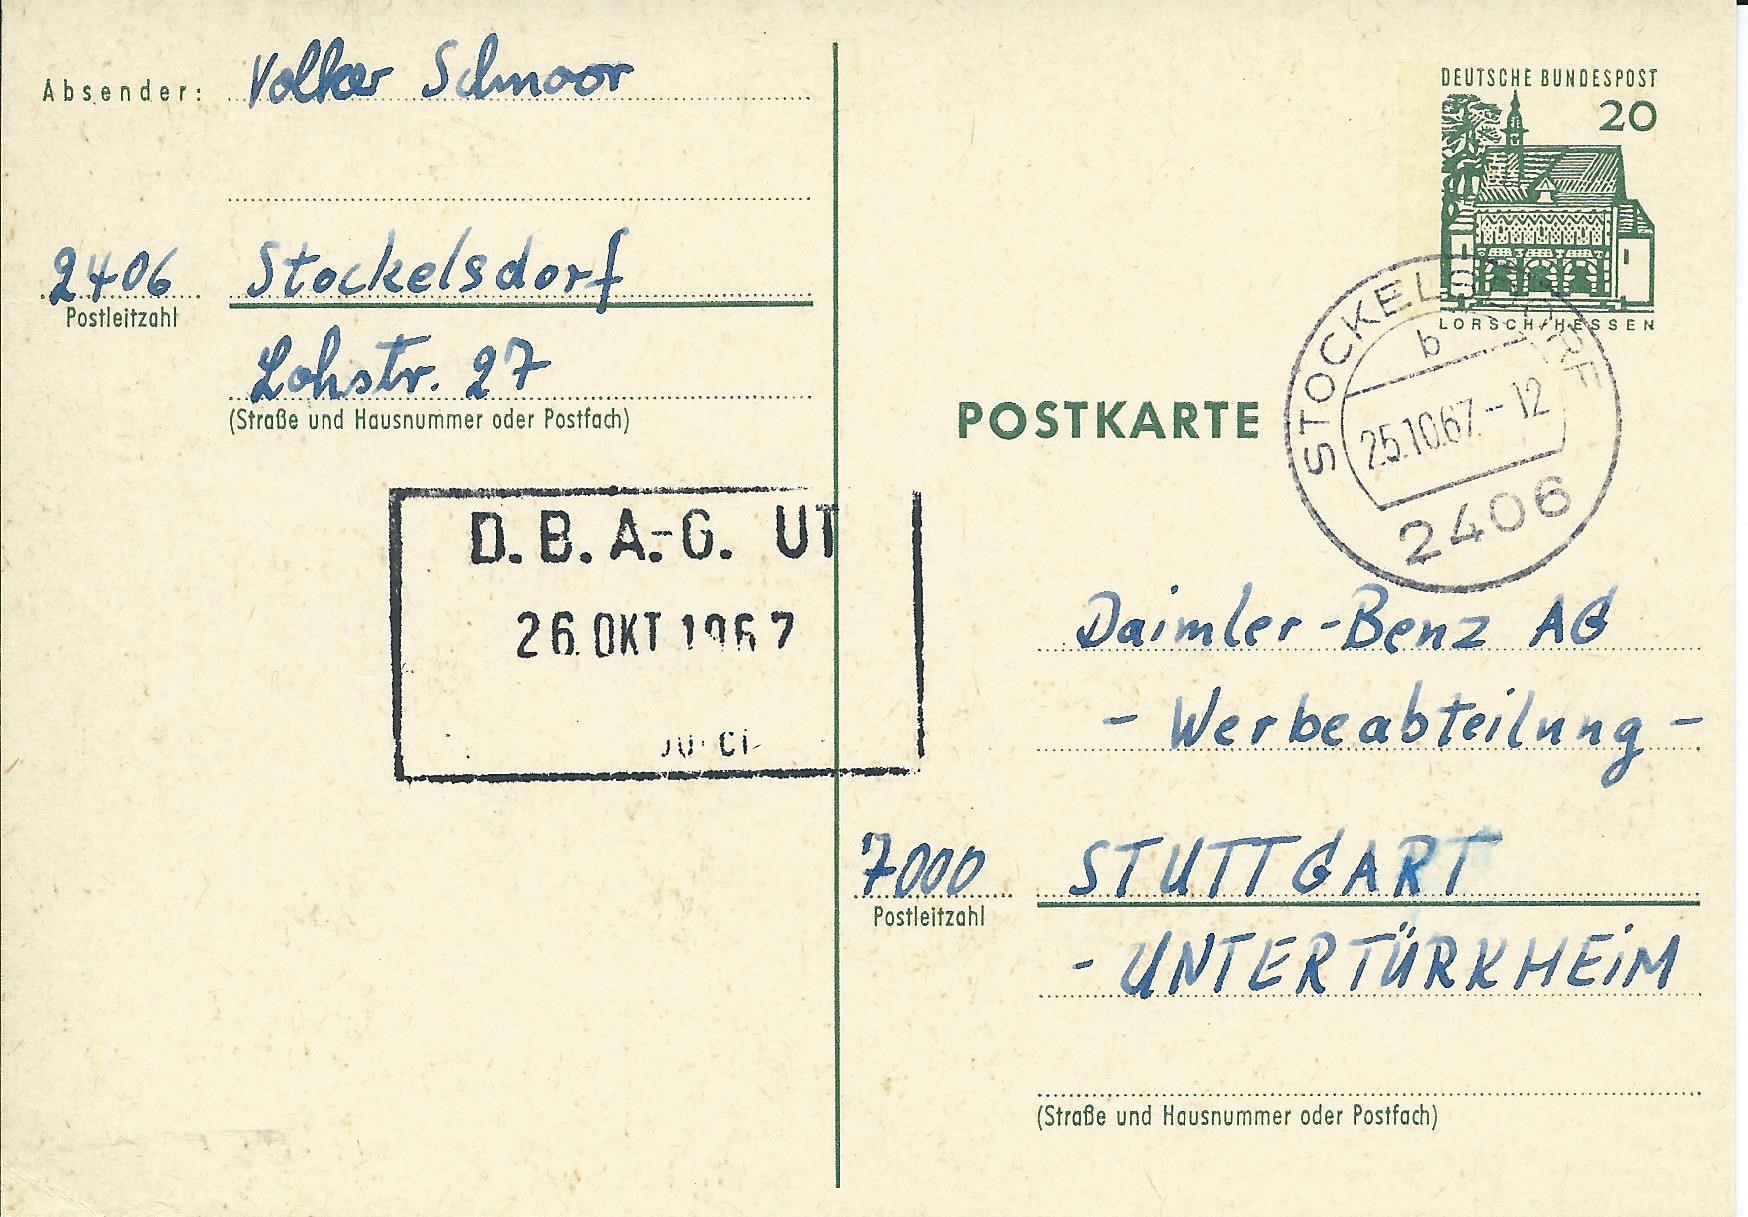 Absender: Volker Schnoor
2406 Stockelsdorf
Postleitzahl
Lohstr. 27
(Straße und Hausnummer oder Postfach)
D.B.A.-G. UT
26. OKT 1967
DEUTSCHE BUNDESPOST
20
LORSCH/HESSEN
STOCKELSDORF
b
25.10.67.--12
2406
POSTKARTE
Daimler-Benz AG
- Werbeabteilung -
7000 STUTTGART
Postleitzahl
- UNTERTÜRKHEIM
(Straße und Hausnummer oder Postfach)